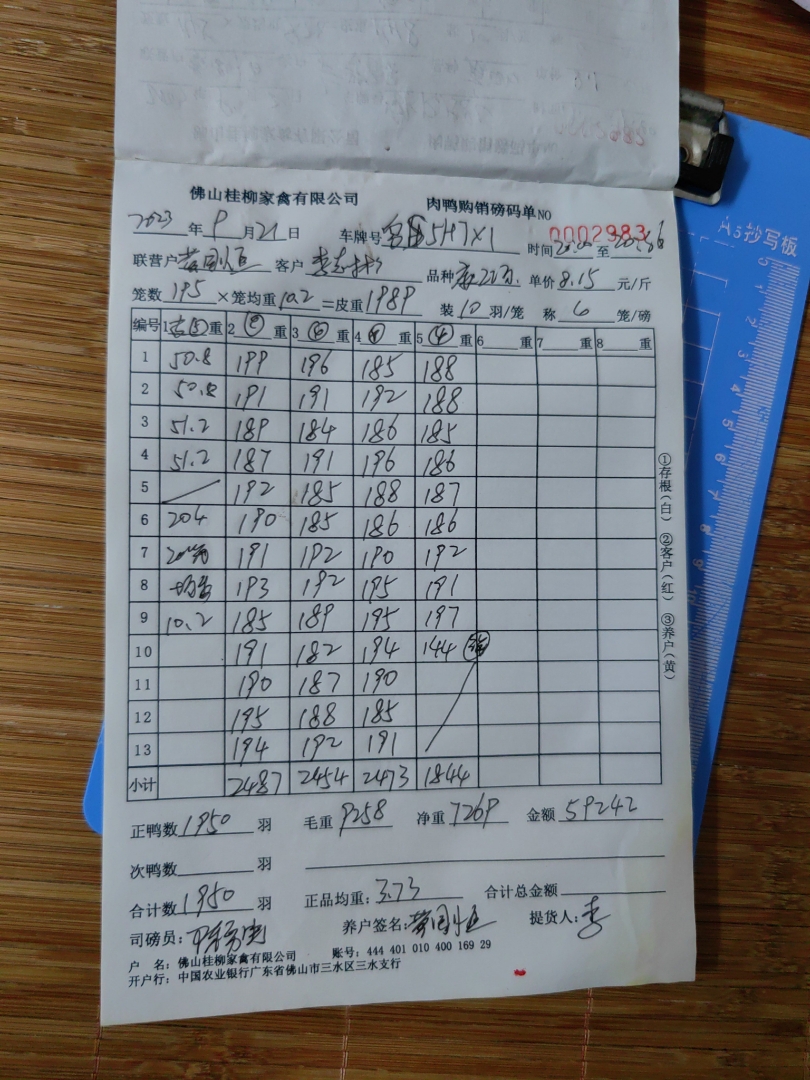 佛山桂柳家禽有限公司 肉鸭购销磅码单 NO 0002983
2023 年 9 月 21 日 车牌号 5H7X1 时间 至
联营户 黄国恒 客户 品种 单价 8.15 元/斤
笼数 195 × 笼均重 10.2 = 皮重 1989 装 10 羽/笼 称 6 笼/磅
编号 1 重 2 重 3 重 4 重 5 ④ 重 6 重 7 重 8 重
1 50.8 199 196 185 188
2 50.8 191 191 192 188
3 51.2 189 184 186 185
4 51.2 187 191 196 186
5 192 185 188 187
6 204 190 185 186 186
7 191 192 190 192
8 193 192 195 191
9 10.2 185 189 195 197
10 191 182 194 144
11 190 187 190
12 195 188 185
13 194 192 191
小计 2487 2454 2473 1844
正鸭数 1950 羽 毛重 9258 净重 7269 金额 59242
次鸭数 羽
合计数 1950 羽 正品均重: 3.73 合计总金额
司磅员: 养户签名: 黄国恒 提货人: 李
户 名: 佛山桂柳家禽有限公司 账号: 444 401 010 400 169 29
开户行: 中国农业银行广东省佛山市三水区三水支行
①存根(白) ②客户(红) ③养户(黄)
A5抄写板